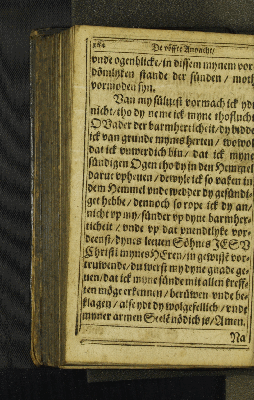 De vöffte Andacht/
vnde ogenblicke/ in dissem mynem vor
dömlyken stande der sünden / moth
vormoden syn.
Van my sülvest vormach ick ydt
nicht/ tho dy neme ick myne thoflucht
O Vader der barmherticheit/ dy bidde
ick van grunde mynes herten / wowol
dat ick vnwerdich bin / dat ick myne
sündigen Ogen tho dy in den Hemmel
darue vpheuen / dewyle ick so vaken in
dem Hemmel vnde wedder dy gesündi-
get hebbe / dennoch so rope ick dy an/
nicht vp my/ sünder vp dyne barmher-
ticheit / vnde vp dat vnendtlyke vor-
deenst/ dynes leeuen Söhnes JESV
Christi mynes HEren/ in gewisse vor-
truwende/ du werst my dyne gnade ge-
uen/ dat ick myne sünde mit allen kreff-
ten möge erkennen / berüwen vnde be-
klagen / alse ydt dy wolgefellich / vnde
myner armen Seele nödich is/ Amen.
Na